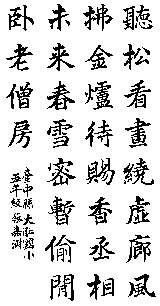 聽松看畫繞虛廊風
拂金爐待賜香丞相
未来春雪密暫偷閒
臥老僧房
臺中縣大肚國小
五年級張嘉